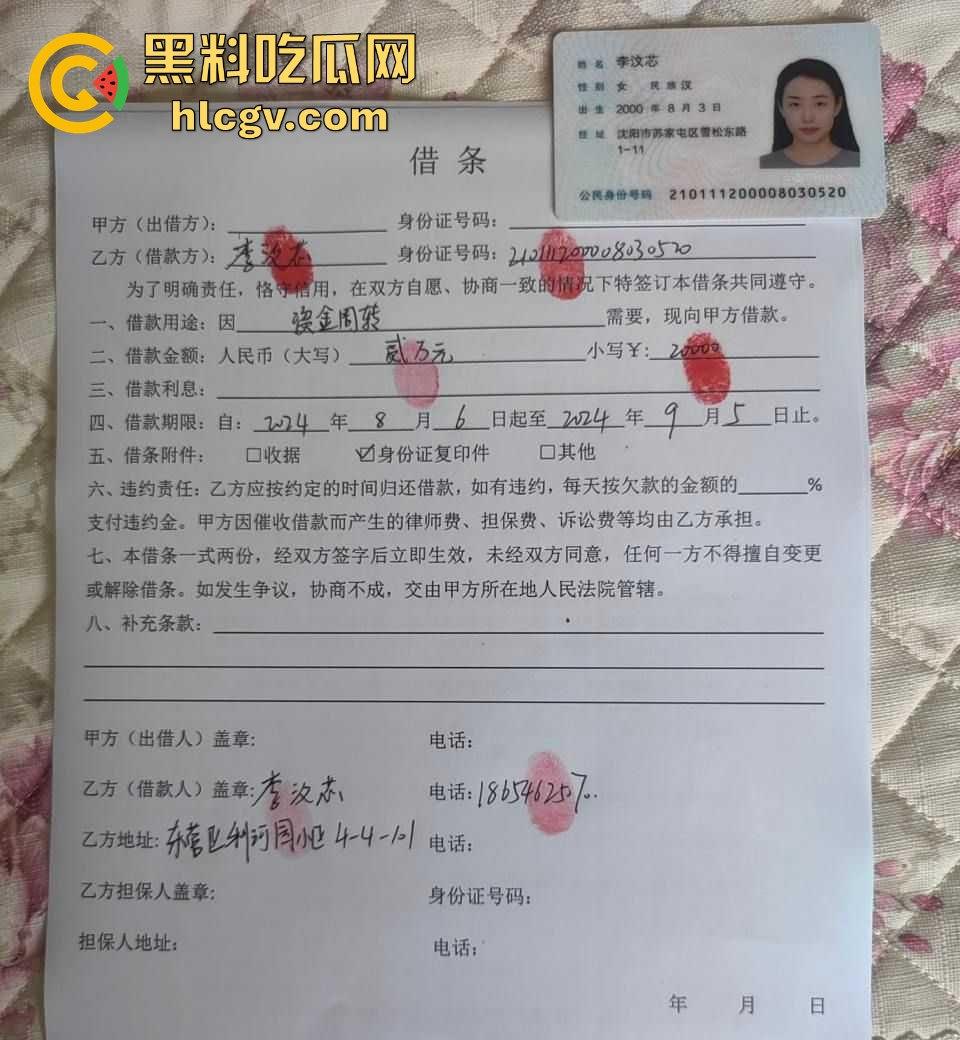 黑料吃瓜网
hlcgv.com
姓名
性别 女 民族 汉
出生
住址
公民身份号码
借条
甲方（出借方）： 身份证号码：
乙方（借款方）： 身份证号码：
为了明确责任，恪守信用，在双方自愿、协商一致的情况下特签订本借条共同遵守。
一、借款用途：因 资金周转 需要，现向甲方借款。
二、借款金额：人民币（大写） 贰万元 小写￥：20000
三、借款利息：
四、借款期限：自：2024年8月6日起至2024年9月5日止。
五、借条附件： □收据 ☑身份证复印件 □其他
六、违约责任：乙方应按约定的时间归还借款，如有违约，每天按欠款的金额的______%
支付违约金。甲方因催收借款而产生的律师费、担保费、诉讼费等均由乙方承担。
七、本借条一式两份，经双方签字后立即生效，未经双方同意，任何一方不得擅自变更
或解除借条。如发生争议，协商不成，交由甲方所在地人民法院管辖。
八、补充条款：
甲方（出借人）盖章： 电话：
乙方（借款人）盖章： 电话：
乙方地址： 电话：
乙方担保人盖章： 身份证号码：
担保人地址： 电话：
年 月 日